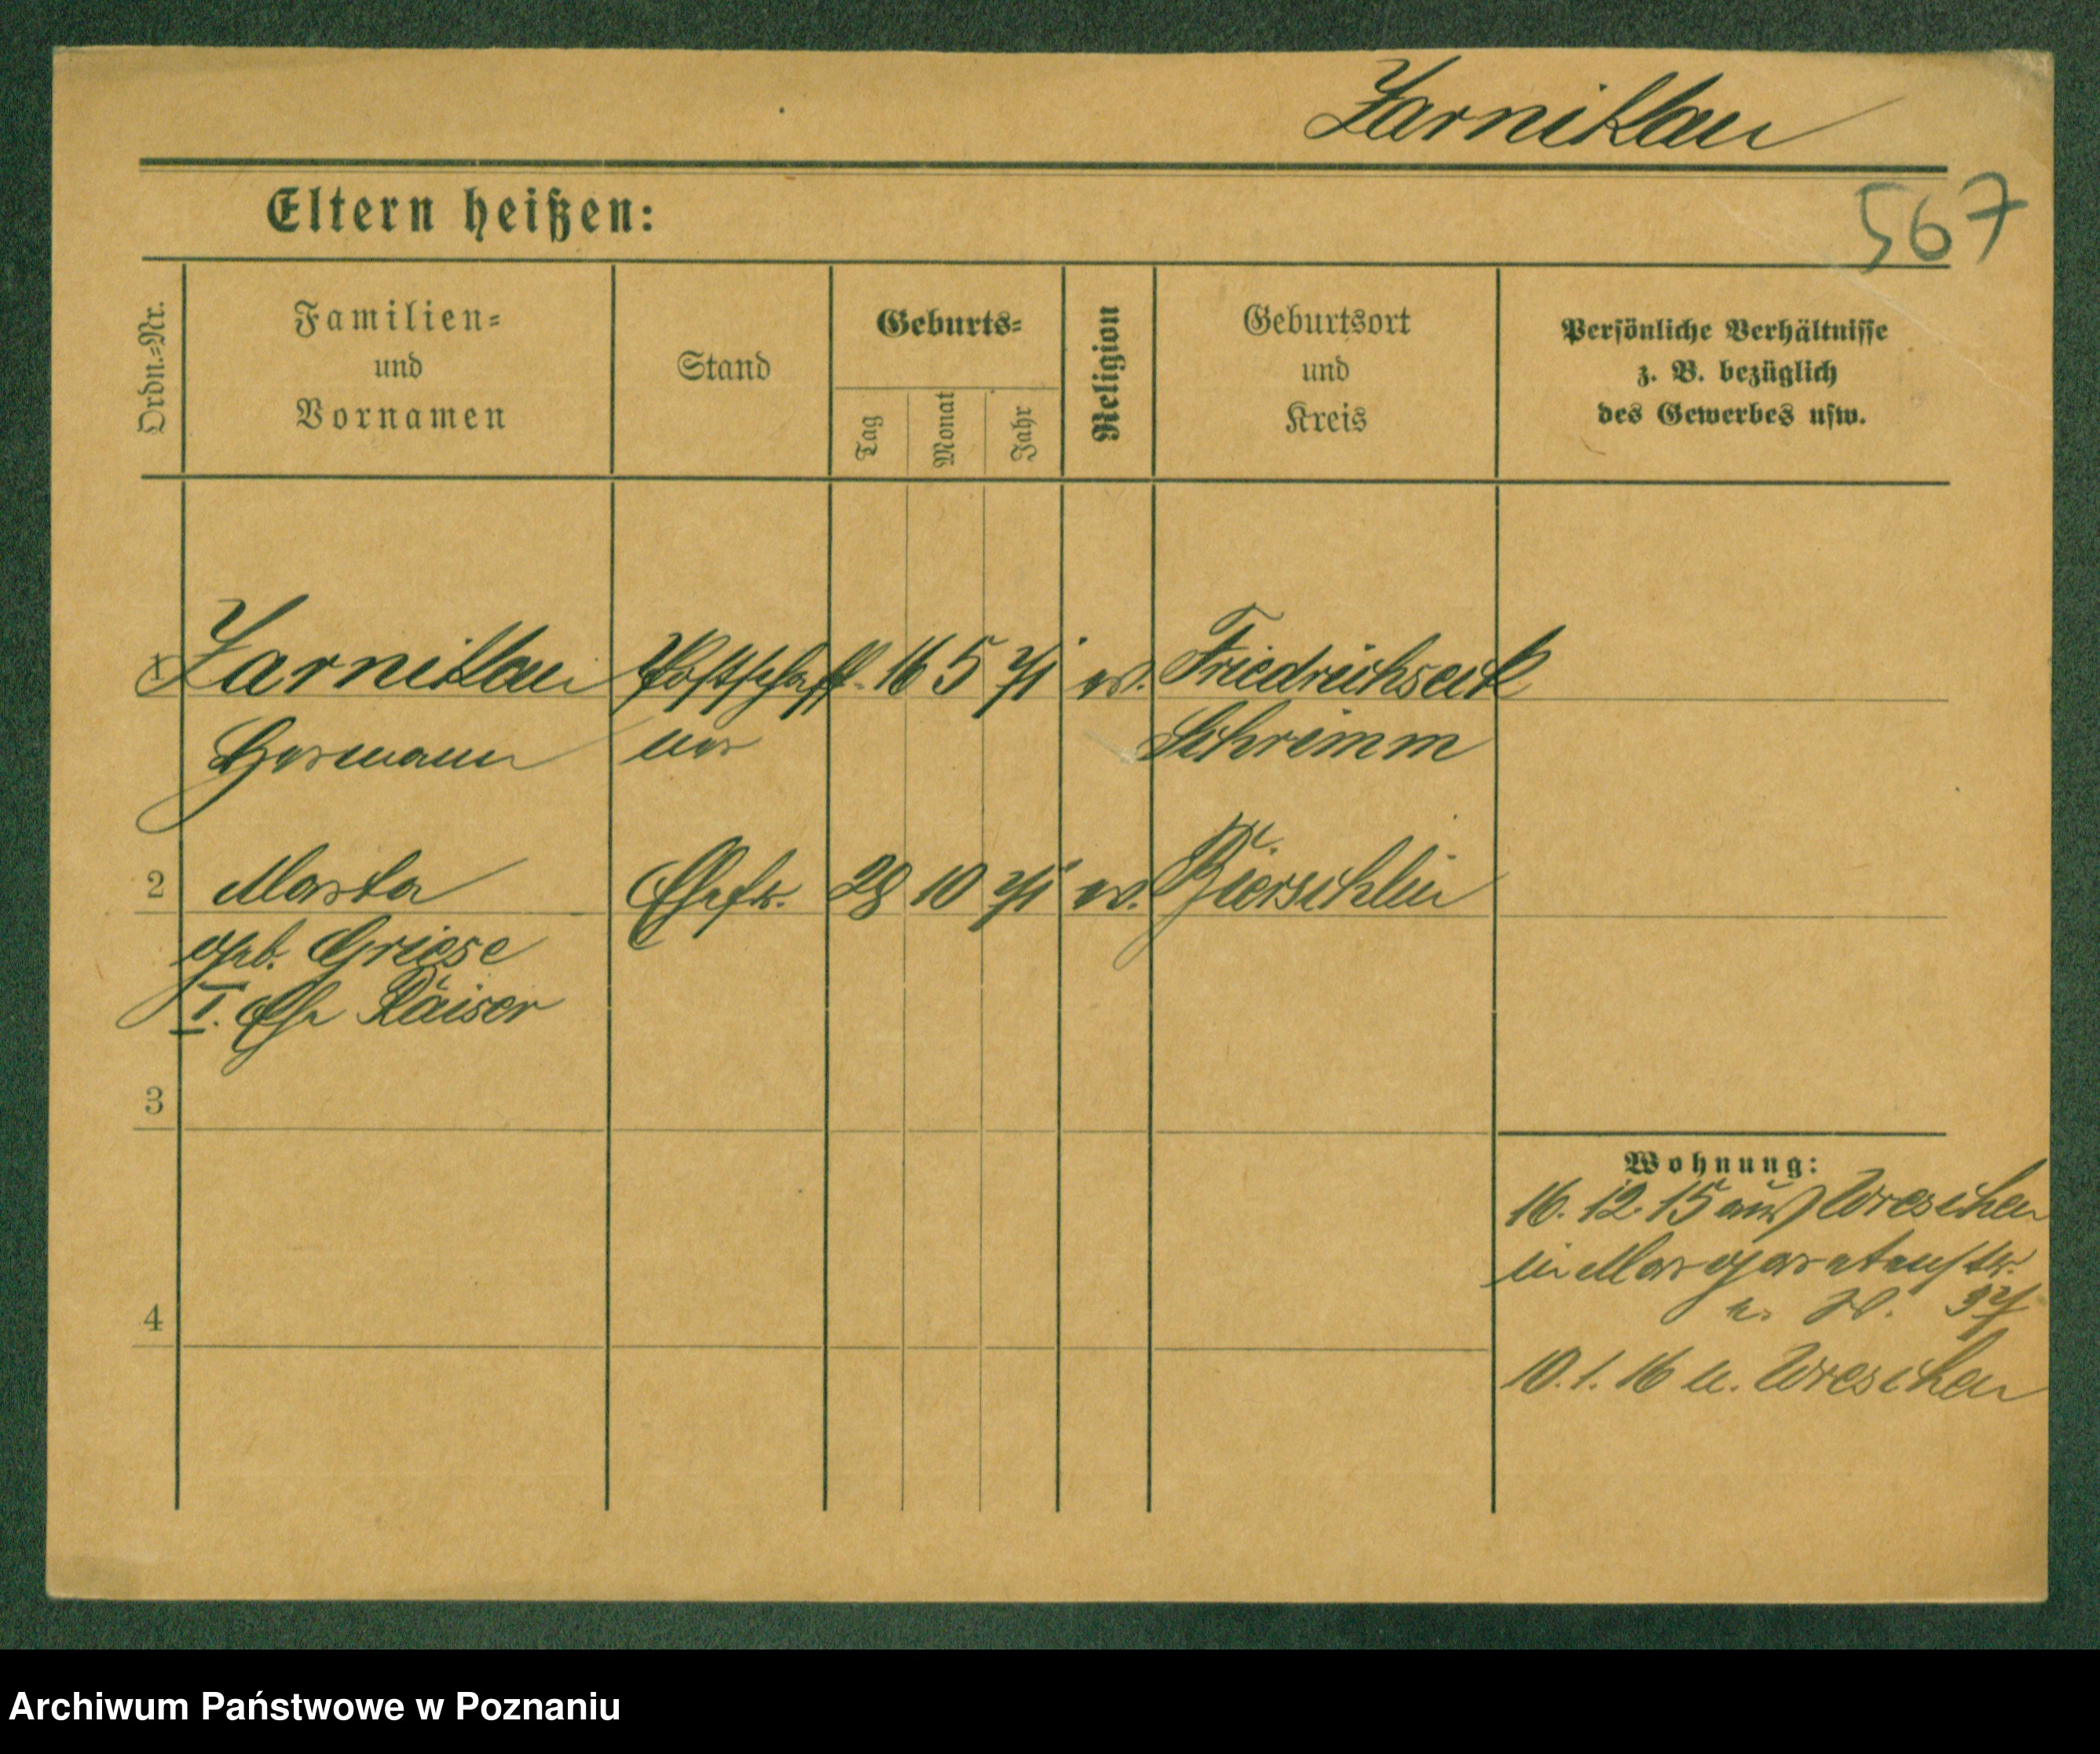 Zarnikau
567
Eltern heißen:
Ordn.=Nr.
Familien=
und
Vornamen
Stand
Geburts=
Tag
Monat
Jahr
Religion
Geburtsort
und
Kreis
Persönliche Verhältnisse
z. B. bezüglich
des Gewerbes usw.
1 Zarnikau Postschaff- 16 5 71 ev. Friedrichseck
Hermann ner Schrimm
2 Marta Ehefr. 28 10 71 ev. Kl. Bierschlin
geb. Griese
I. Ehe Kaiser
3
4
Wohnung:
16. 12. 15 aus Wreschen
in Margaretenstr.
37
10. 1. 16 n. Wreschen
Archiwum Państwowe w Poznaniu